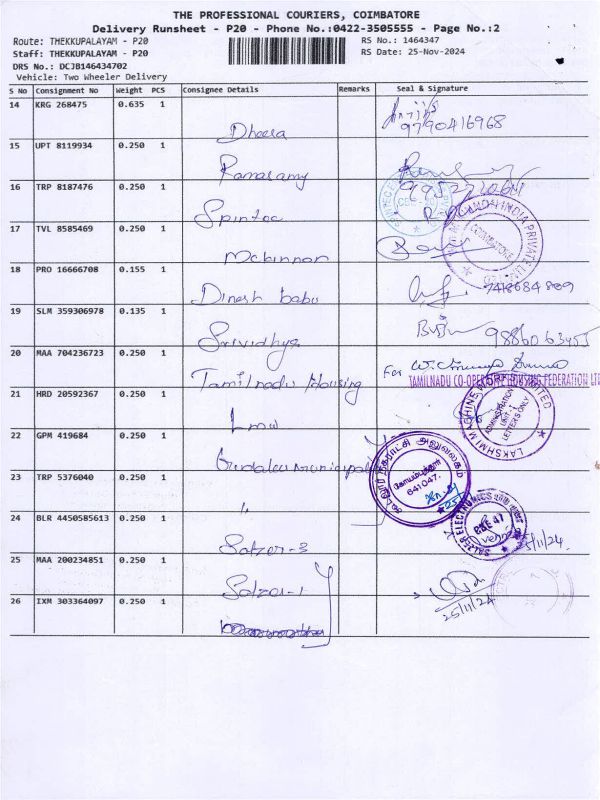 THE PROFESSIONAL COURIERS, COIMBATORE
Delivery Runsheet - P20 - Phone No.:0422-3505555 - Page No.:2
Route: THEKKUPALAYAM - P20
RS No.: 1464347
Staff: THEKKUPALAYAM - P20
RS Date: 25-Nov-2024
DRS No.: DCJB146434702
Vehicle: Two Wheeler Delivery
S No Consignment No Weight PCS Consignee Details Remarks Seal & Signature
14 KRG 268475 0.635 1
Dheera 9790416968
15 UPT 8119934 0.250 1
Ramasamy
16 TRP 8187476 0.250 1
Spintec
17 TVL 8585469 0.250 1
COIMBATORE
18 PRO 16666708 0.155 1
Dinesh babu 7418684809
19 SLM 359306978 0.135 1
Srividhya
20 MAA 704236723 0.250 1
Tamilnadu Housing For
TAMILNADU CO-OPERATIVE HOUSING FEDERATION LTD
21 HRD 20592367 0.250 1
Lmw
LAKSHMI MACHINE LIMITED
ADMINISTRATION
UNIT
LETTERS ONLY
22 GPM 419684 0.250 1
Gudalur Municipal
கூடலூர் நகராட்சி அலுவலகம்
கோயமுத்தூர்
641047.
23 TRP 5376040 0.250 1
"
24 BLR 4450585613 0.250 1
Salzer-3
SALZER ELECTRONICS
CBE 47
25/11/24.
25 MAA 200234851 0.250 1
Salzer-1
25/11/24
26 IXM 303364097 0.250 1